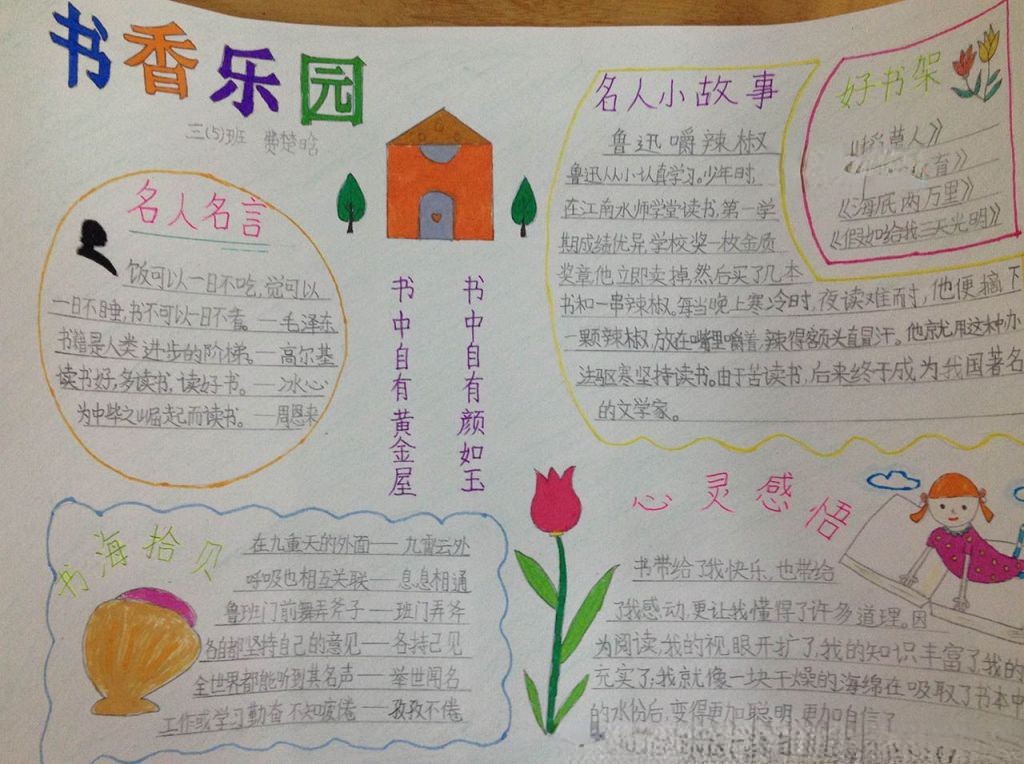 书香乐园
三(5)班 费楚晗
名人名言
饭可以一日不吃,觉可以
一日不睡,书不可以一日不看。—毛泽东
书籍是人类进步的阶梯。—高尔基
读书好,多读书,读好书。—冰心
为中华之崛起而读书。—周恩来
书中自有颜如玉
书中自有黄金屋
名人小故事
鲁迅嚼辣椒
鲁迅从小认真学习。少年时,
在江南水师学堂读书,第一学
期成绩优异,学校奖一枚金质
奖章,他立即卖掉,然后买了几本
书和一串辣椒。每当晚上寒冷时,夜读难耐,他便摘下
一颗辣椒,放在嘴里嚼着,辣得额头直冒汗。他就用这种办
法驱寒坚持读书。由于苦读书,后来终于成为我国著名
的文学家。
好书架
《稻草人》
育》
《海底两万里》
《假如给我三天光明》
书海拾贝
在九重天的外面——九霄云外
呼吸也相互关联——息息相通
鲁班门前舞弄斧子——班门弄斧
各自都坚持自己的意见——各持己见
全世界都能听到其名声——举世闻名
工作或学习勤奋不知疲倦——孜孜不倦
心灵感悟
书带给了我快乐,也带给
了我感动,更让我懂得了许多道理。因
为阅读,我的视眼开扩了,我的知识丰富了,我的
充实了;我就像一块干燥的海绵在吸取了书本中
的水份后,变得更加聪明,更加自信了